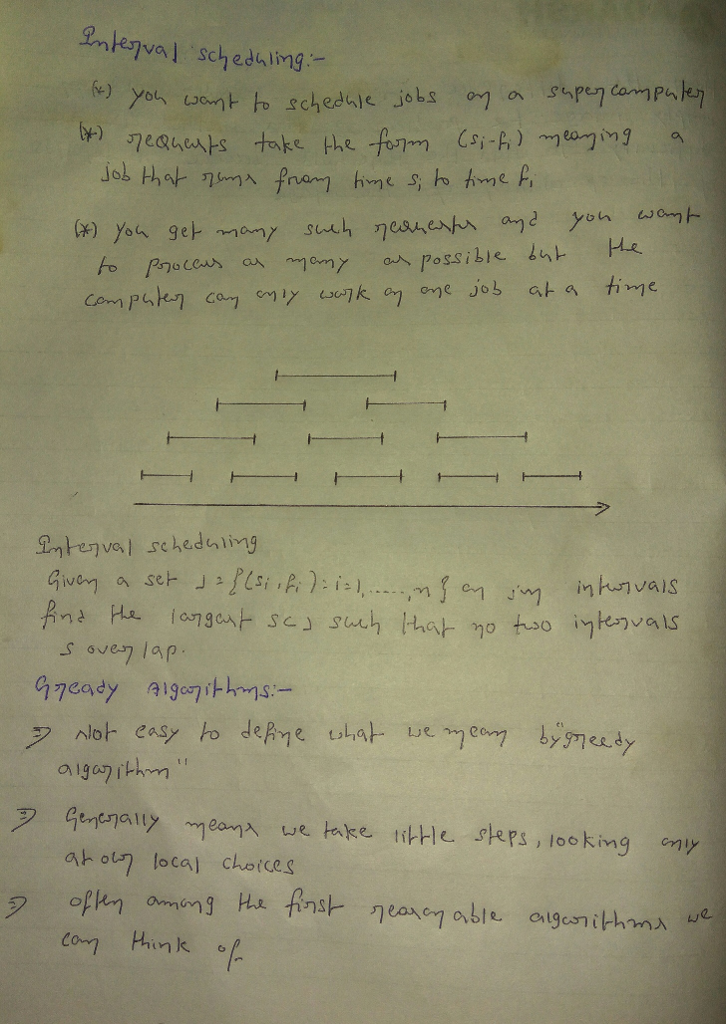 Interval scheduling:-
(*) you want to schedule jobs on a supercomputer
(*) requests take the form (si-fi) meaning a
job that runs from time si to time fi
(*) you get many such requests and you want
to process as many as possible but the
computer can only work on one job at a time
Interval scheduling
Given a set J={(si,fi):i=1,.....,n} on intervals
find the largest S⊂J such that no two intervals
S overlap.
Gready Algorithms:-
⇒ Not easy to define what we mean by "greedy
algorithm"
⇒ Generally means we take little steps, looking only
at our local choices
⇒ often among the first reasonable algorithms we
can think of